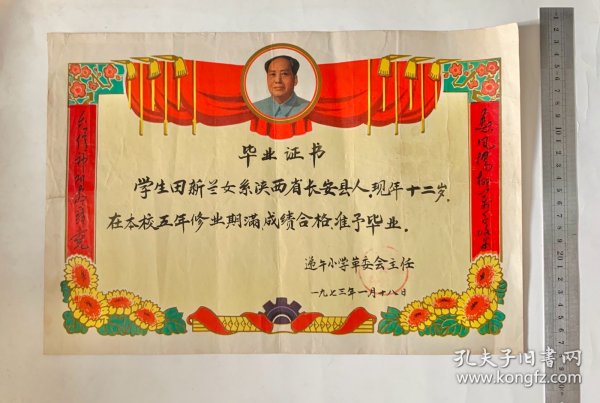 毕业证书
学生田新兰女系陕西省长安县人，现年十二岁，
在本校五年修业期满成绩合格，准予毕业。
递午小学革委会主任
一九七三年一月十八日
春风杨柳万千条
六亿神州尽舜尧
孔夫子旧书网
www.kongfz.com